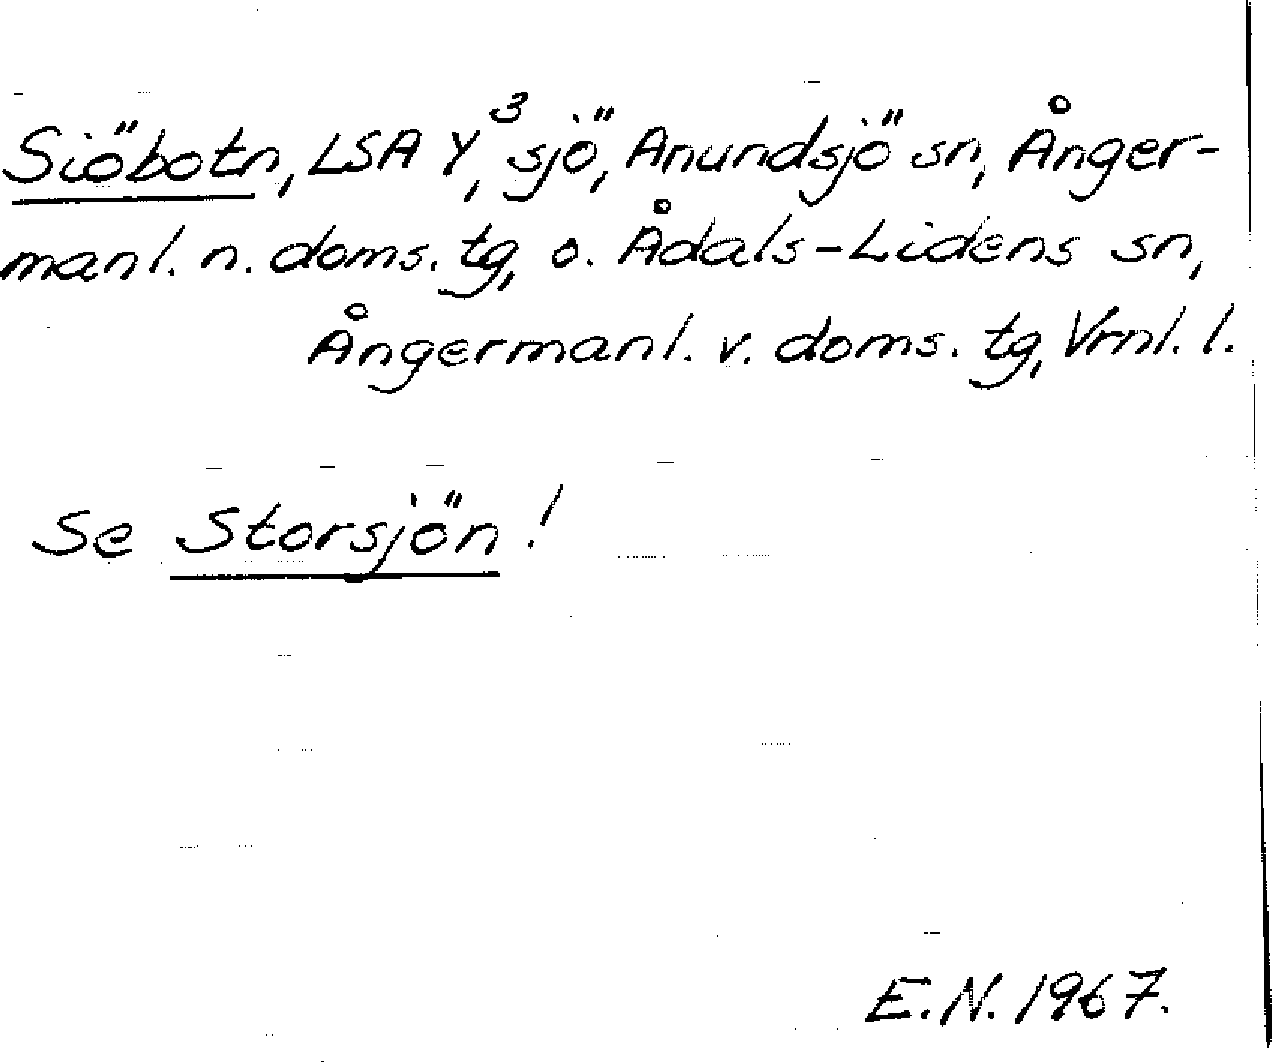 Siöbotn, LSA Y³, sjö, Anundsjö sn, Ånger-
manl. n. doms. tg, o. Ådals-Lidens sn,
Ångermanl. v. doms. tg, Vrnl. l.
Se Storsjön!
E.N. 1967.